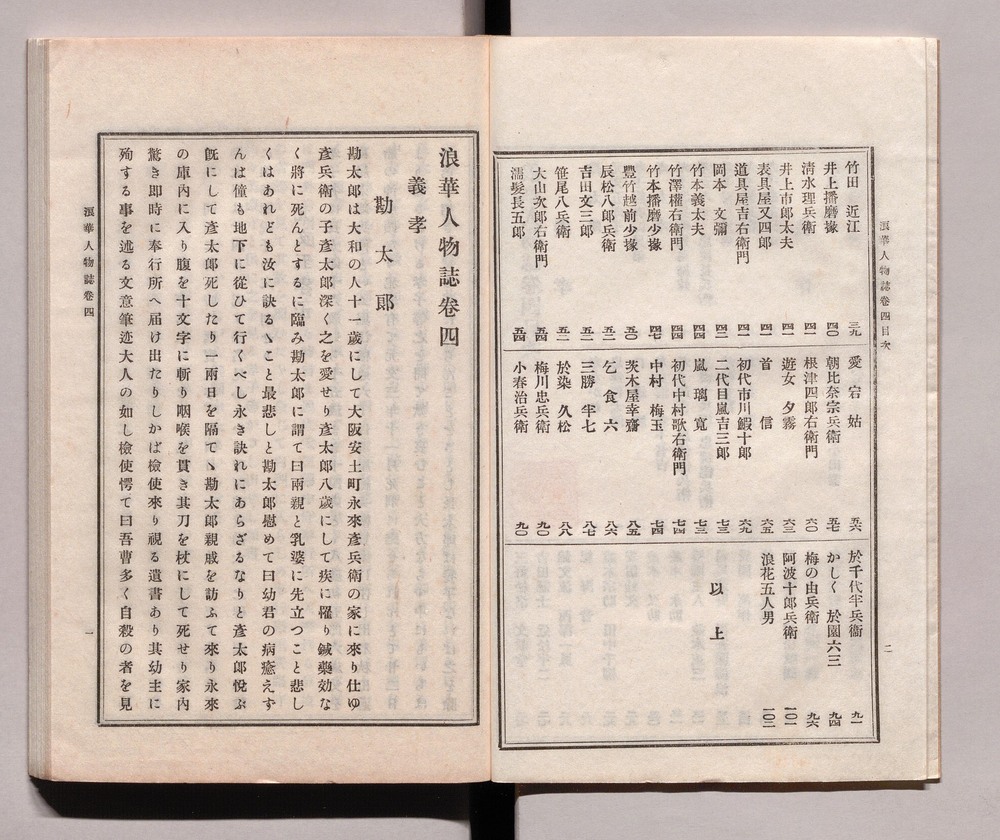 浪華人物誌卷四目次
二
竹田　近江　三九
井上播磨掾　四〇
淸水理兵衛　四一
井上市郎太夫　四一
表具屋又四郎　四一
道具屋吉右衛門　四一
岡本　文彌　四二
竹本義太夫　四四
竹澤權右衛門　四四
竹本播磨少掾　四七
豐竹越前少掾　五〇
辰松八郎兵衛　五二
吉田文三郎　五二
笹尾八兵衛　五二
大山次郎右衛門　五四
濡髮長五郎　五四
愛宕姑　五六
朝比奈宗兵衛　五七
根津四郎右衛門　六〇
遊女　夕霧　六三
首　信　六五
初代市川鰕十郎　六九
二代目嵐吉三郎　七三
嵐　璃寬　七三
初代中村歌右衛門　七四
中村　梅玉　七四
茨木屋幸齋　八五
乞食六　八六
三勝　半七　八七
於染　久松　八八
梅川忠兵衛　九〇
小春治兵衛　九〇
於千代半兵衞　九一
かしく　於園六三　九四
梅の由兵衛　九六
阿波十郎兵衛　一〇一
浪花五人男　一〇二
以上
浪華人物誌卷四
義孝
勘太郞
勘太郎は大和の人十一歲にして大阪安土町永來彥兵衛の家に來り仕ゆ
彥兵衛の子彥太郎深く之を愛せり彥太郎八歲にして疾に罹り鍼藥効な
く將に死んとするに臨み勘太郎に謂て曰兩親と乳婆に先立つこと悲し
くはあれども汝に訣るゝこと最悲しと勘太郎慰めて曰幼君の病癒えず
んは僮も地下に從ひて行くべし永き訣れにあらざるなりと彥太郎悅ぶ
旣にして彥太郎死したり一兩日を隔てゝ勘太郎親戚を訪ふて來り永來
の庫內に入り腹を十文字に斬り咽喉を貫き其刀を杖にして死せり家內
驚き卽時に奉行所へ届け出たりしかば檢使來り視る遺書あり其幼主に
殉する事を述る文意筆迹大人の如し檢使愕て曰吾曹多く自殺の者を見
浪華人物誌卷四
一